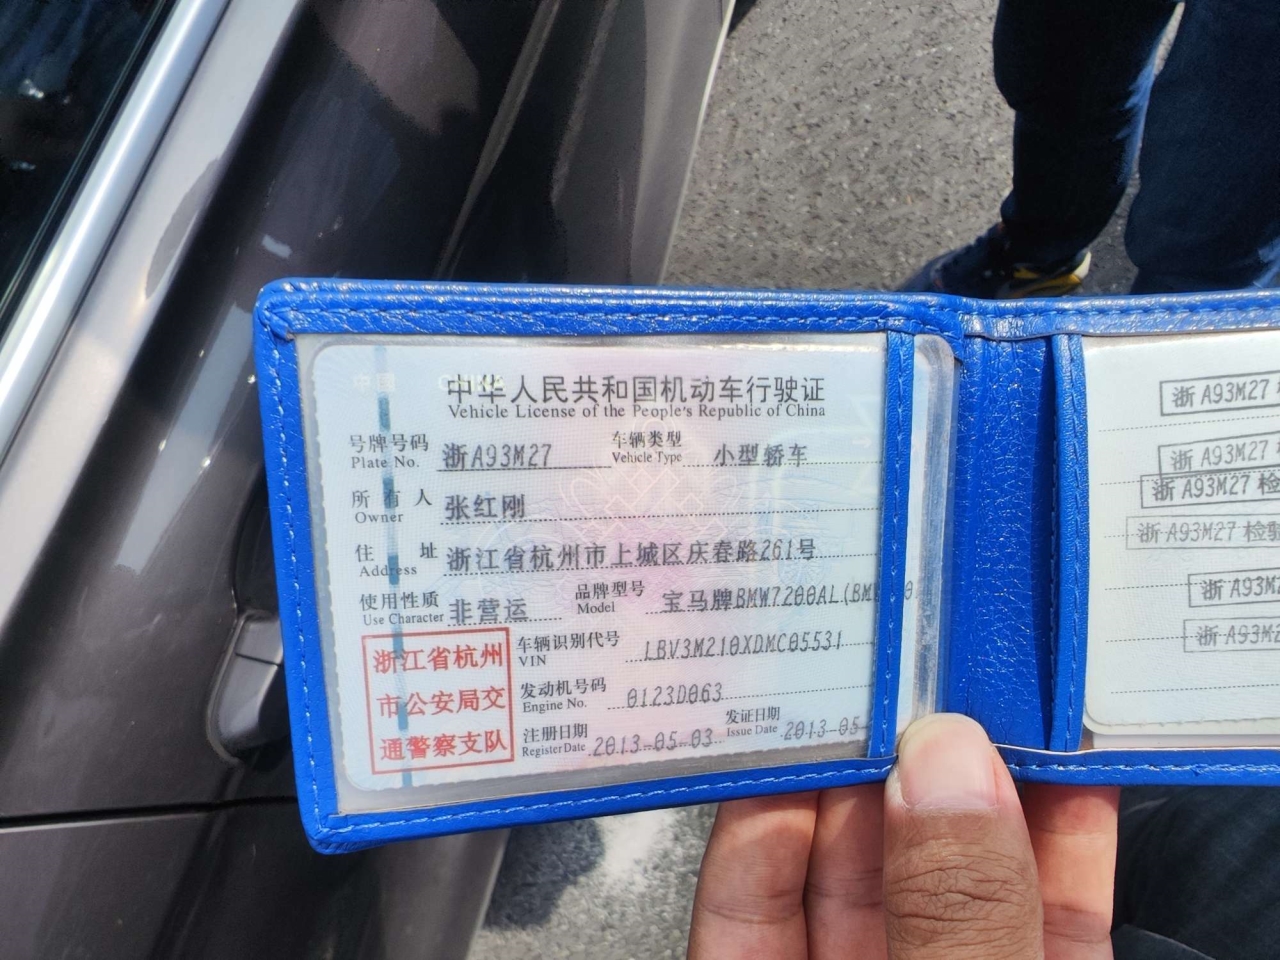 中国 CHINA
中华人民共和国机动车行驶证
Vehicle License of the People's Republic of China
号牌号码 浙A93M27 车辆类型 小型轿车
Plate No. Vehicle Type
所有人 张红刚
Owner
住址 浙江省杭州市上城区庆春路261号
Address
使用性质 非营运 品牌型号 宝马牌BMW7200AL(BM
Use Character Model
浙江省杭州
市公安局交
通警察支队
车辆识别代号 LBV3M210XDMC05531
VIN
发动机号码 0123D063
Engine No.
注册日期 2013-05-03 发证日期 2013-05-
Register Date Issue Date
浙A93M27
浙A93M27
浙A93M27 检
浙A93M27 检验
浙A93M2
浙A93M2